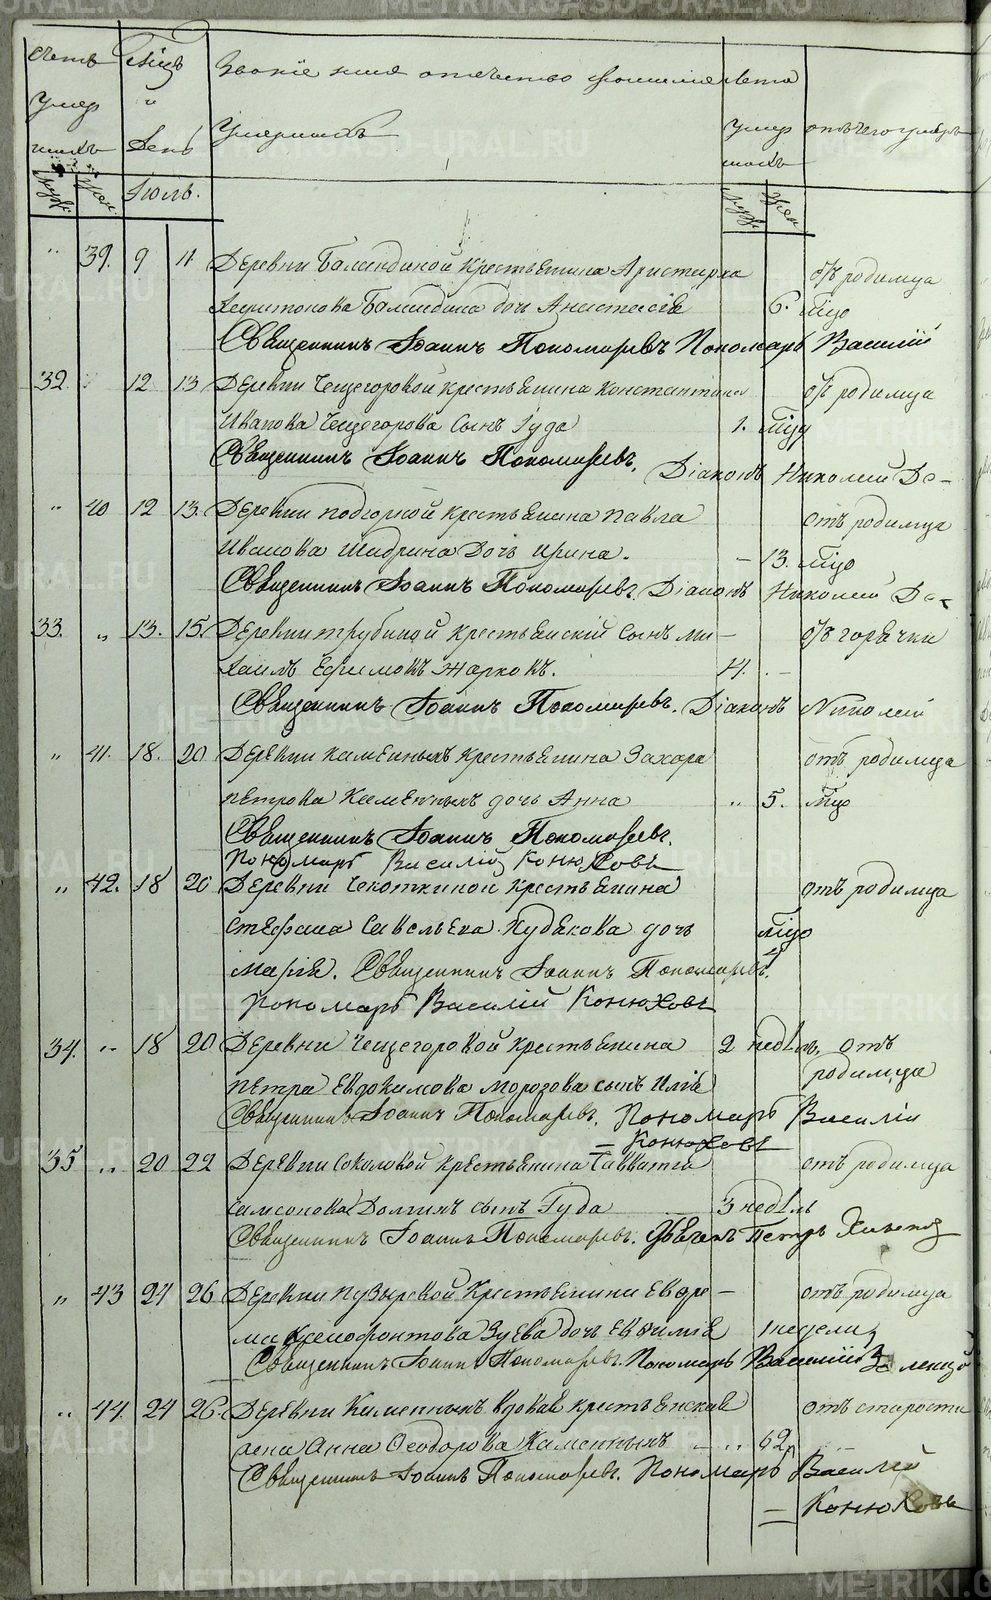 Счетъ Мѣсяцъ Званіе имя отечество фамилія Лета
умер и Умершихъ умер отъ чего умеръ
шихъ День шихъ
муж жен Іюль. муж жен
" 39. 9 11 Деревни Баландиной крестьянина Аристарха отъ родимца
Харитонова Баландина дочь Анастасія 6. мѣсяцо
Священникъ Іоаннъ Пономаревъ Пономарь Василій
32 12 13 Деревни Чещегоровой крестьянина Константина отъ родимца
Иванова Чещегорова сынъ Іуда 1. мѣсяцу
Священникъ Іоаннъ Пономаревъ. Діаконъ Николай
" 40 12 13. Деревни Подгорной крестьянина Павла отъ родимца
Иванова Шадрина дочь Ирина. – 13. мѣсяцо
Священникъ Іоаннъ Пономаревъ. Діаконъ Николай
33. " 13. 15. Деревни Трубиной крестьянскій сынъ Ми– отъ горячки
хаилъ Ефимовъ Жарковъ. –
Священникъ Іоаннъ Пономаревъ. Діаконъ Николай
" 41. 18. 20 Деревни Каменныхъ крестьянина Захара отъ родимца
Петрова Каменныхъ дочь Анна " 5. мѣсяцо
Священникъ Іоаннъ Пономаревъ.
Пономарь Василій Конюховъ
" 42. 18 20 Деревни Чекоткиной крестьянина отъ родимца
Стефана Савельева Худякова дочь мѣсяцо
Марія. Священникъ Іоаннъ Пономаревъ. 4
Пономарь Василій Конюховъ
34. " 18 20 Деревни Чещегоровой крестьянина 2 недѣль. отъ
Петра Евдокимова Морозова сынъ Илія родимца
Священникъ Іоаннъ Пономаревъ. Пономарь Василій
= Конюховъ
35 " 20 22 Деревни Соколовой крестьянина Савватія отъ родимца
Самсонова Долгихъ сынъ Іуда 3 недѣль
Священникъ Іоаннъ Пономаревъ. Петръ
" 43 24 26 Деревни Пузыревой крестьянина Ефре– отъ родимца
ма Ксенофонтова Зуева дочь Евфимія 1 недели
Священникъ Іоаннъ Пономаревъ. Пономарь Василій
" 44. 24 26. Деревни Каменныхъ вдовая крестьянская отъ старости
жена Анна Ѳеодорова Каменныхъ – " 62
Священникъ Іоаннъ Пономаревъ. Пономарь Василій
= Конюховъ
METRIKI.GASO-URAL.RU